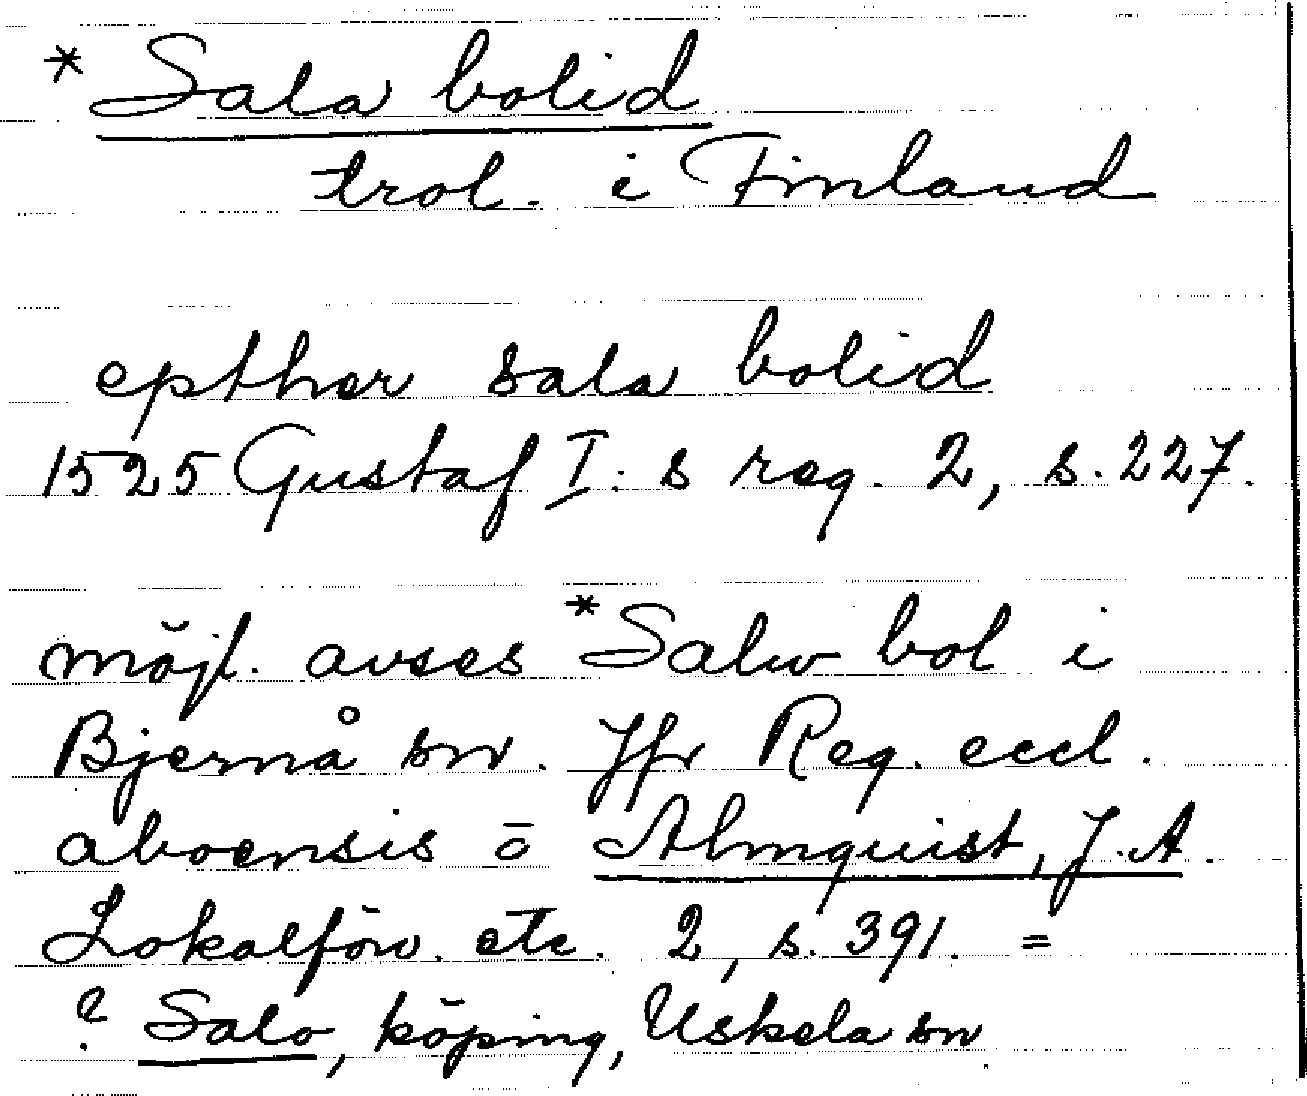 * Sala bolid
trol. i Finland
epther sala bolid
1525 Gustaf I:s reg. 2, s. 227.
möjl. avses *Salw bol i
Bjernå sn. Jfr Reg. eccl.
aboensis o Almquist, J.A.
Lokalförv. etc. 2, s. 391. =
? Salo, köping, Uskela sn